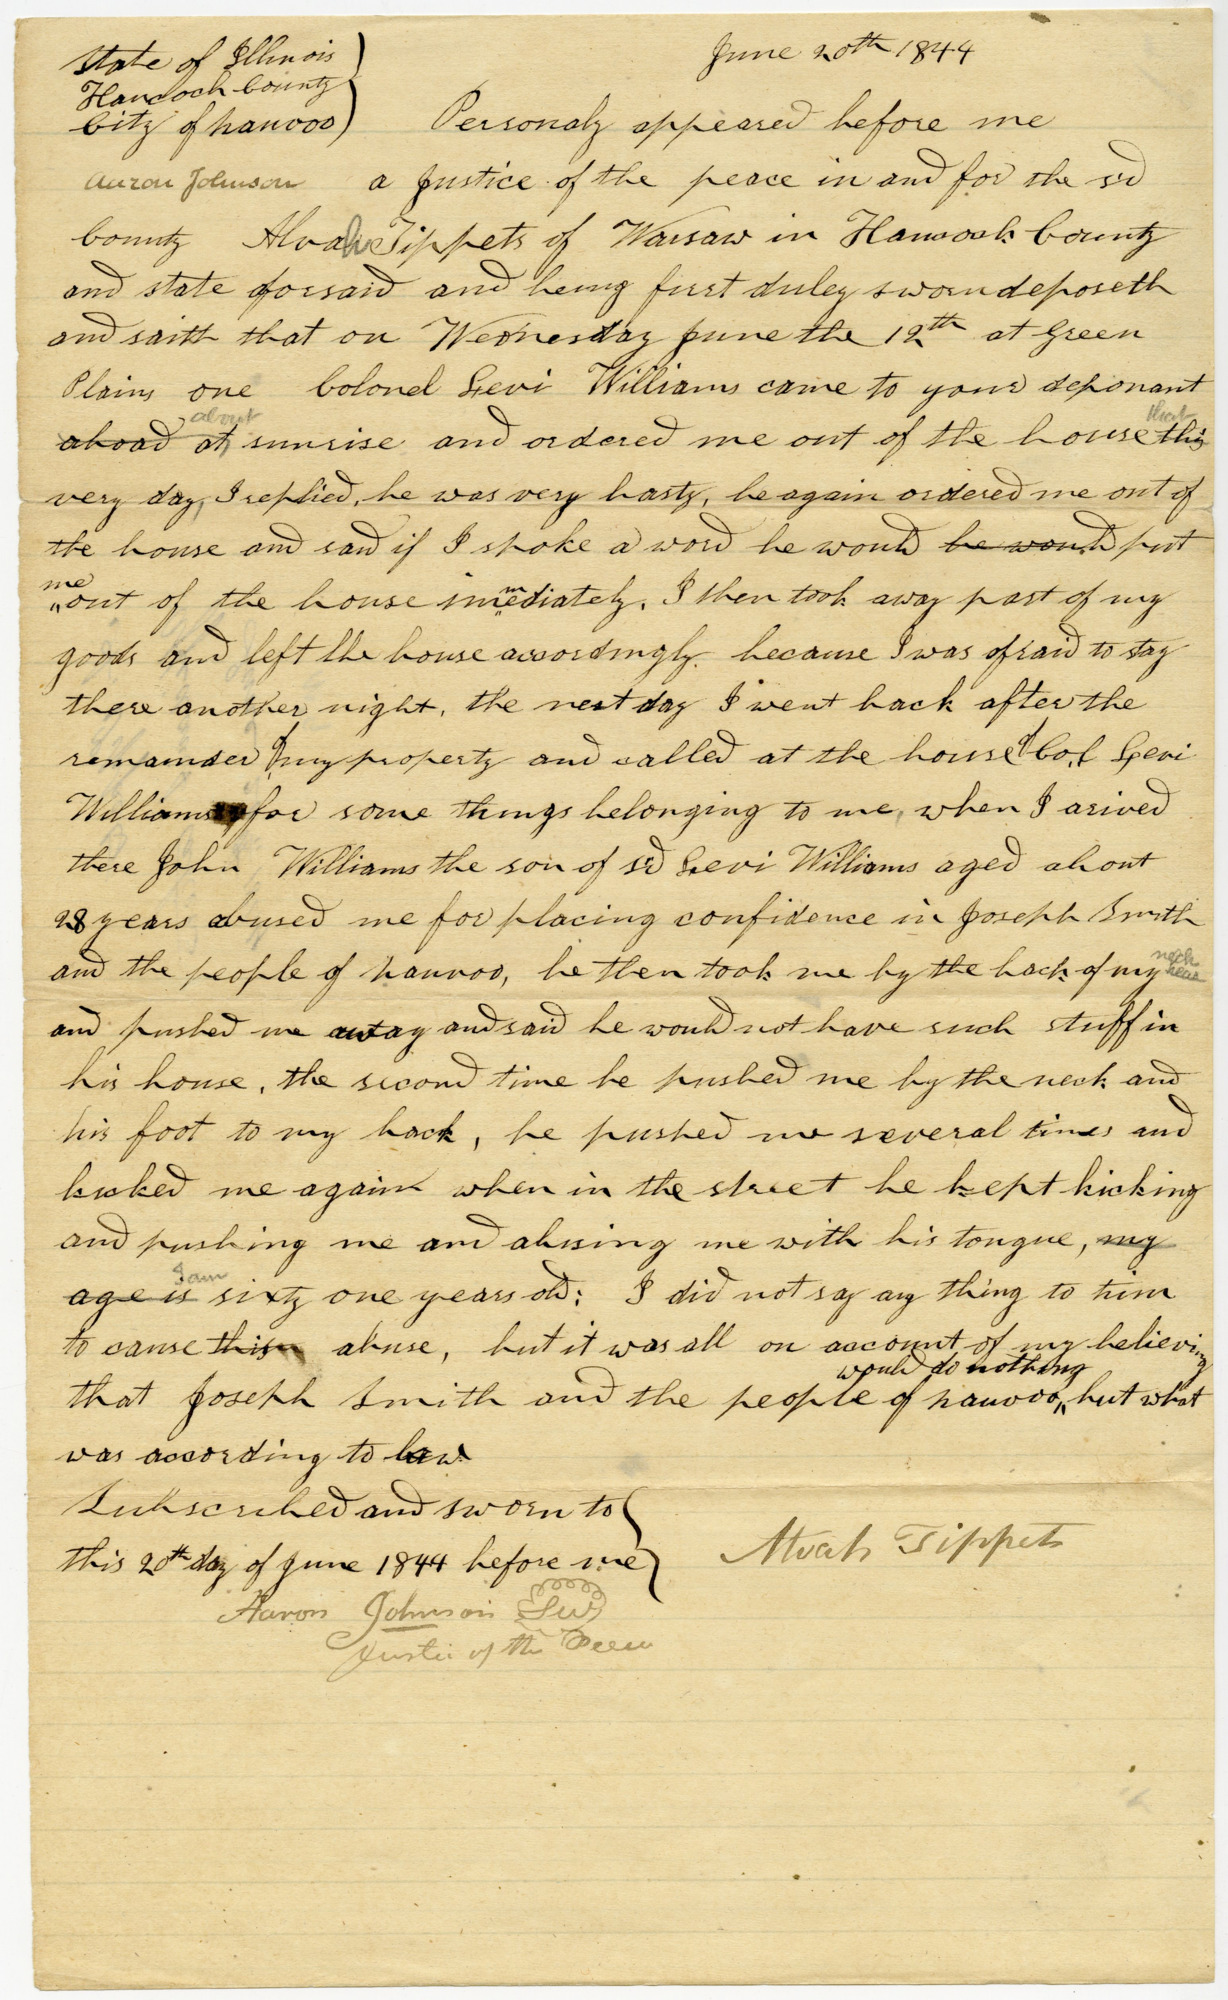 State of Illinois
June 20th 1844
Hancock County
City of nauvoo
Personaly appeared before me
Aaron Johnson a Justice of the peace in and for the sd
County Alvah Tippets of Warsaw in Hancock County
and state forsaid and being first duley sworn deposeth
and saith that on Wednesday June the 12th at Green
Plains one Colonel Levi Williams came to your deponant
about that
aboad at sunrise and ordered me out of the house this
very day, I replied, he was very hasty, he again ordered me out of
the house and said if I spoke a word he would he would put
me m
out of the house imediately. I then took away part of my
goods and left the house accordingly. because I was afraid to stay
there another night, the next day I went back after the
remainder of my property and called at the house of Col Levi
Williams for some things belonging to me, when I arived
there John Williams the son of sd Levi Williams aged about
28 years abused me for placing confidence in Joseph Smith
neck
and the people of nauvoo, he then took me by the back of my
and pushed me away and said he would not have such stuff in
his house, the second time he pushed me by the neck and
his foot to my back, he pushed me several times and
kicked me again when in the street he kept kicking
and pushing me and abusing me with his tongue, my
I am
age is sixty one years old; I did not say any thing to him
to cause this abuse, but it was all on account of my believing
would do nothing
that Joseph Smith and the people of nauvoo, but what
was according to law
Subscribed and sworn to
this 20th day of June 1844 before me
Alvah Tippets
Aaron Johnson
Justice of the Peace